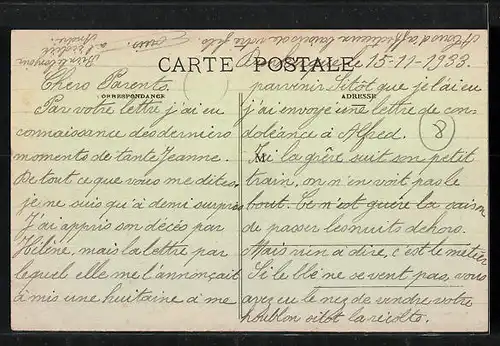 CARTE POSTALE
CORRESPONDANCE
ADRESSE
le 15-11-1933
Chers Parents.
Par votre lettre j'ai eu
connaissance des derniers
moments de tante Jeanne.
De tout ce que vous me dites,
je ne suis qu'à demi surpris
J'ai appris son décès par
Hélène, mais la lettre par
laquelle elle me l'annonçait
a mis une huitaine à me
parvenir. Sitôt que je l'ai eu
j'ai envoyé une lettre de con-
doléance à Alfred.
8
M
Ici la grève suit son petit
train, on n'en voit pas le
bout. Ce n'est guère la saison
de passer les nuits dehors.
Mais rien à dire, c'est le métier
Si le blé ne se vent pas, vous
avez eu le nez de vendre votre
houblon sitôt la récolte.
A tous d'affectueux baisers de votre fils